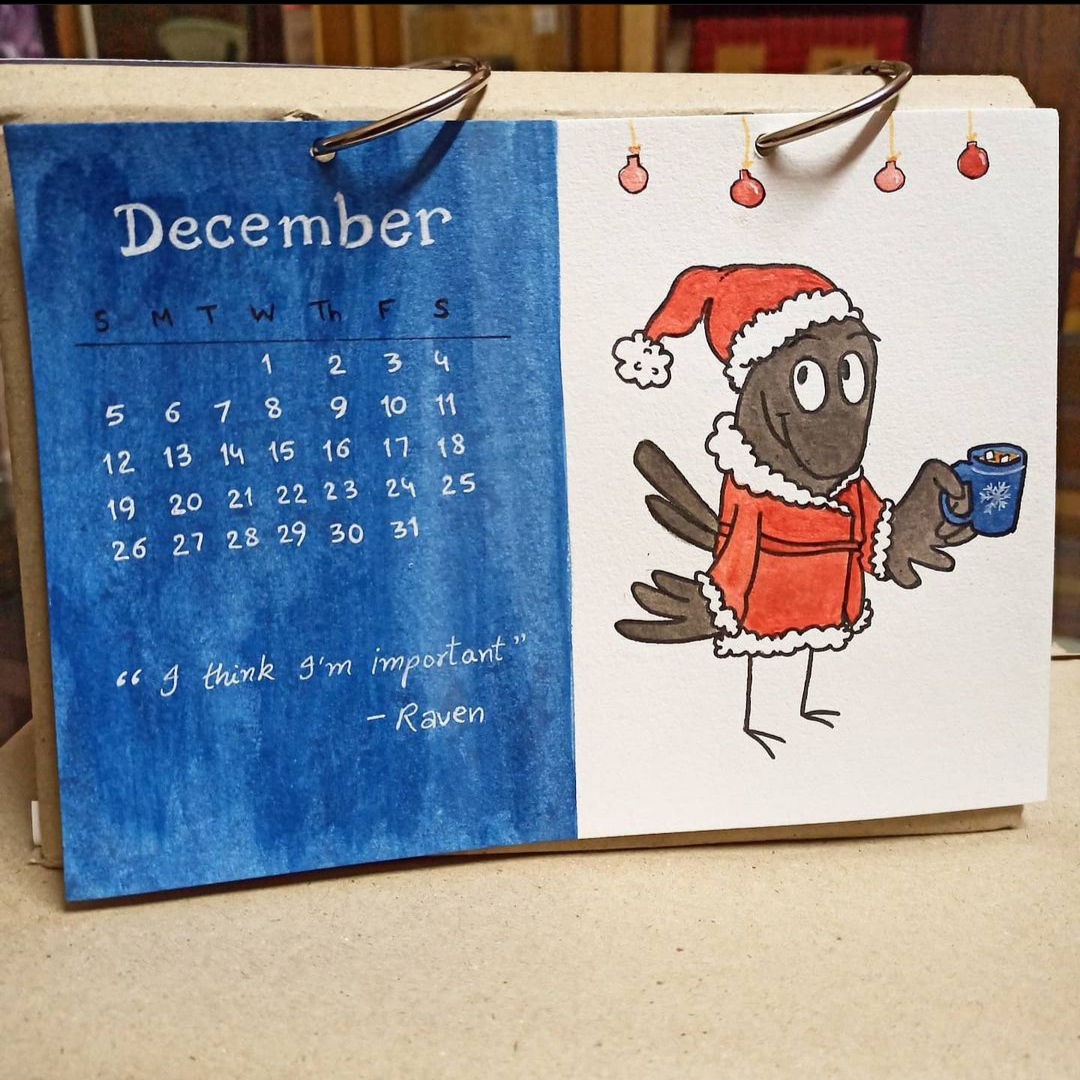 December
S M T W Th F S
1 2 3 4
5 6 7 8 9 10 11
12 13 14 15 16 17 18
19 20 21 22 23 24 25
26 27 28 29 30 31
“I think I'm important”
- Raven